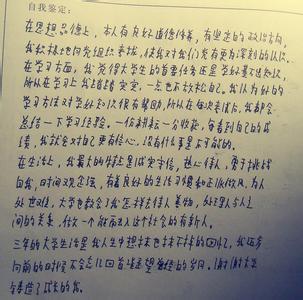 自我鉴定:
在思想品德上，本人有良好道德修养，有坚定的政治方向，
我积极地向党组织靠拢，使我对我们党有更为深刻的认识。
在学习方面，我觉得大学生的首要任务还是学好文化知识，
所以在学习上我踏踏实实，一点也不放松自己。我认为好的
学习方法对学好知识很有帮助，所以在每次考试后，我都会
总结一下学习经验。一份耕耘一分收获，每看到自己的成
绩，我就会对自己更有信心，没有什么事是不可能的。
在生活上，我最大的特点是诚实守信，热心待人，勇于挑战
自我，时间观念强，有着良好的生活习惯和正派作风，为人
处世，大学也教会了我怎样去待人善物，处理人与人之
间的关系，做一个能融入这个社会的有新人。
三年的大学生活是我人生中想抹也抹不掉的回忆，我迈步
向前的时候不会忘记回首远望曾经的岁月。谢谢大学